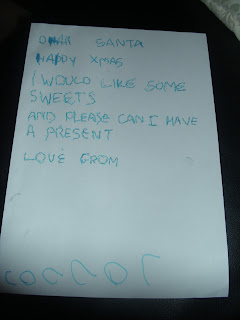 DEAR SANTA
HAPPY XMAS
I WOULD LIKE SOME
SWEETS
AND PLEASE CAN I HAVE
A PRESENT
LOVE FROM
connor